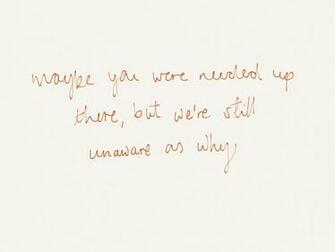 maybe you were needed up
there, but we're still
unaware as why